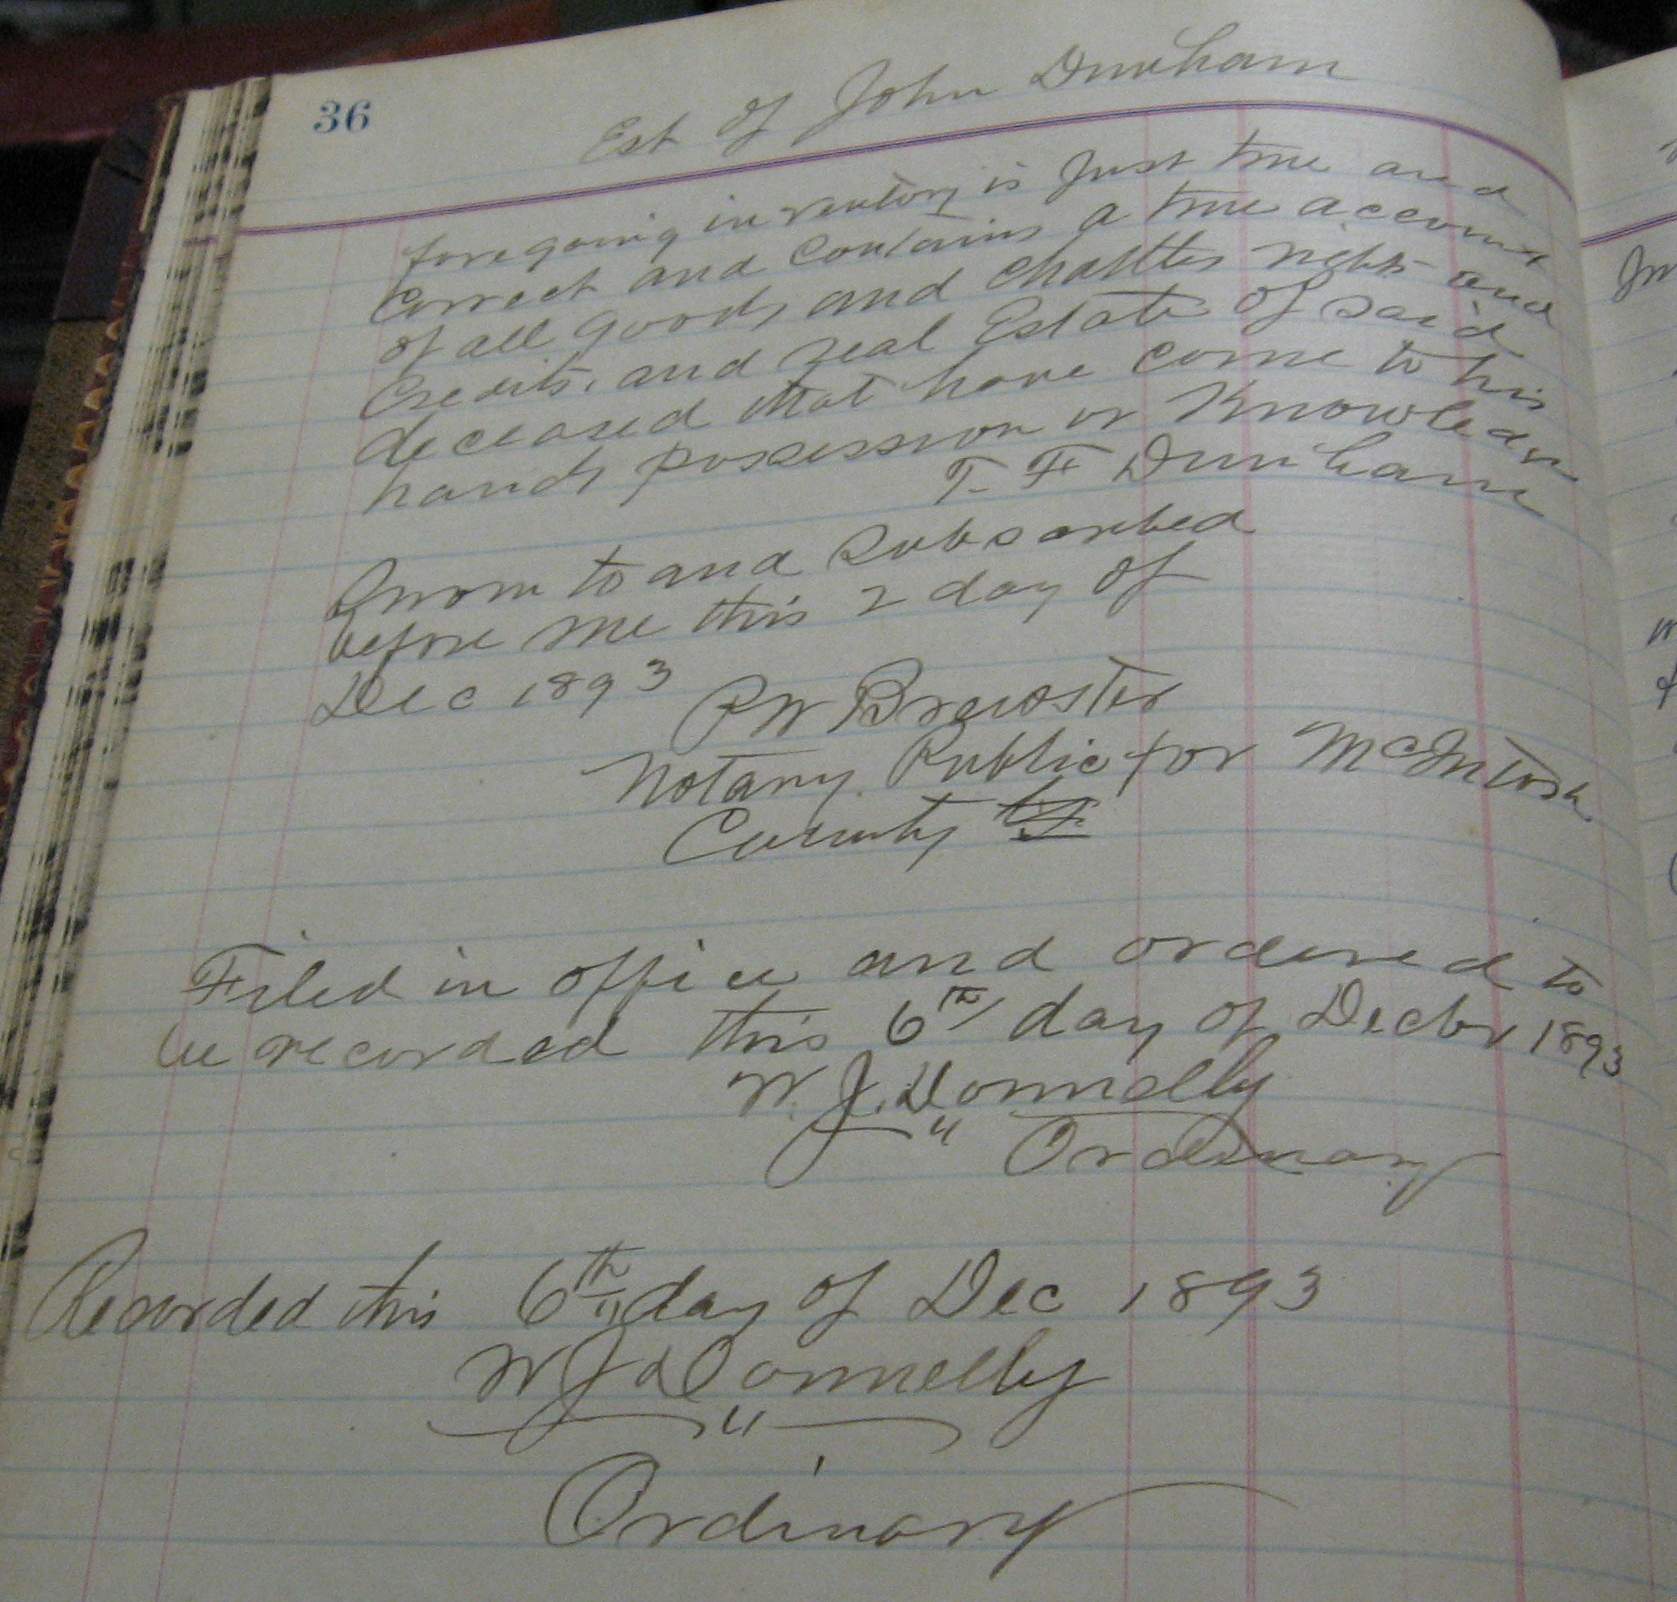 36
Est of John Dunham
foregoing inventory is Just true and
Correct and Contains a true account
of all goods and chattles rights and
Credits, and real Estate of said
deceased that have come to his
hands possession or Knowledge
T. F Dunham
Sworn to and subscribed
before me this 2 day of
Dec 1893
PW Brewster
Notary Public for McIntosh
County
Filed in office and ordered to
be recorded this 6th day of Decbr 1893
W. J. Donnelly
Ordinary
Recorded this 6th day of Dec 1893
W J Donnelly
Ordinary